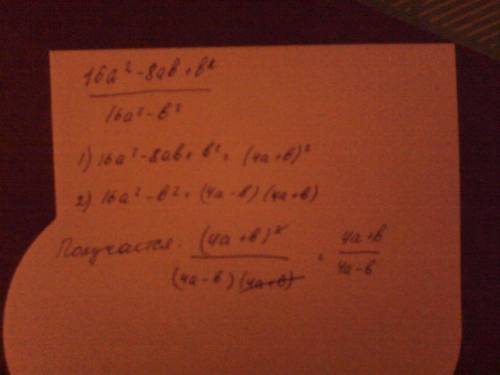 16a² - 8ab + b²
16a² - b²
1) 16a² - 8ab + b² = (4a+b)²
2) 16a² - b² = (4a-b)(4a+b)
Получается: (4a+b)² / (4a-b)(4a+b) = 4a+b / 4a-b